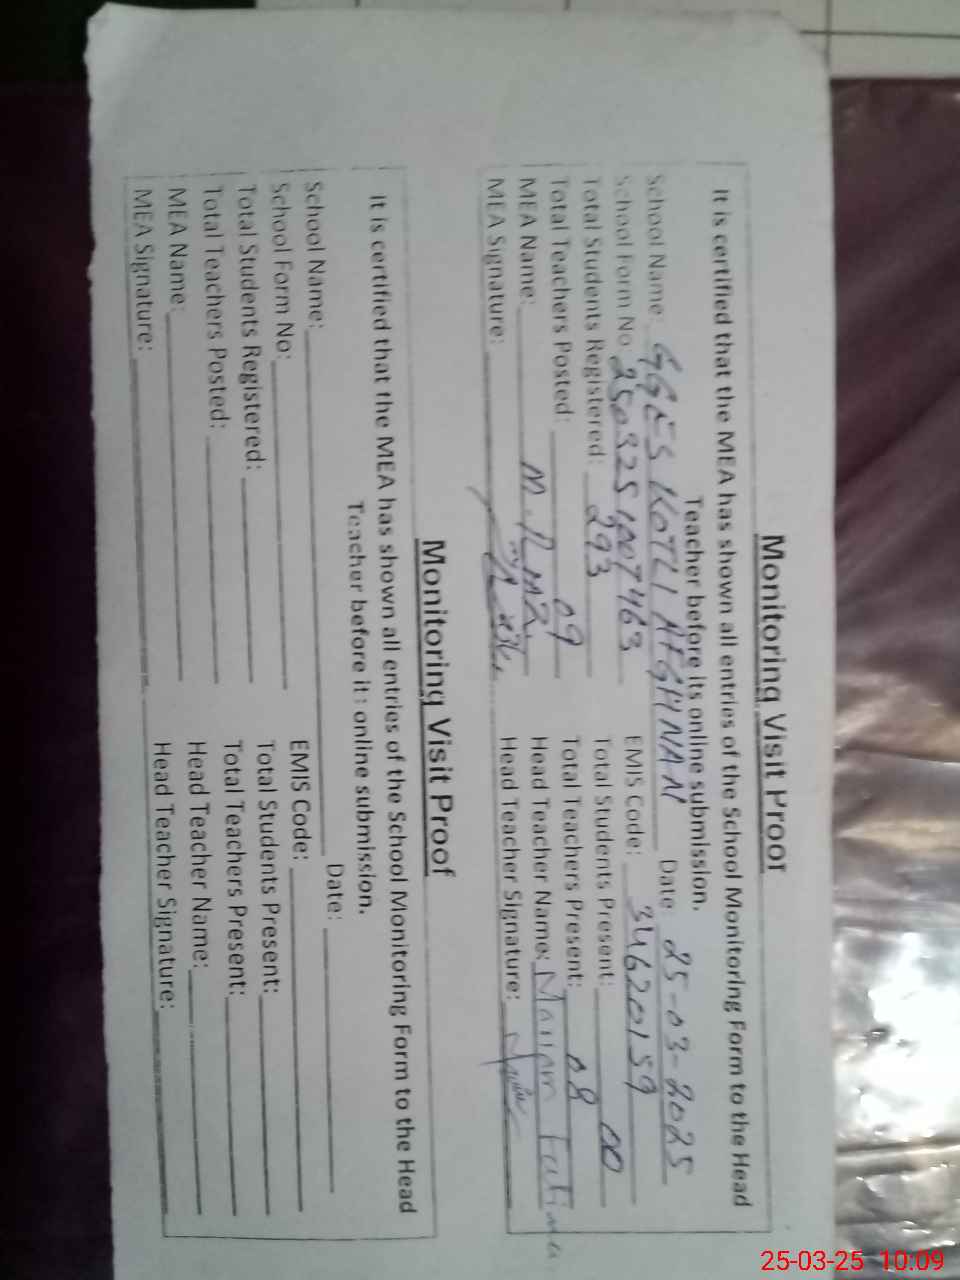 Monitoring Visit Proof
It is certified that the MEA has shown all entries of the School Monitoring Form to the Head
Teacher before its online submission.
School Name: GGES KOTLI AFGHNAN Date: 25-03-2025
School Form No: 250325 1007463 EMIS Code: 34620159
Total Students Registered: 293 Total Students Present: 00
Total Teachers Posted: 09 Total Teachers Present: 08
MEA Name: M. Head Teacher Name: Fatima
MEA Signature: Head Teacher Signature:
Monitoring Visit Proof
It is certified that the MEA has shown all entries of the School Monitoring Form to the Head
Teacher before its online submission.
School Name: Date:
School Form No: EMIS Code:
Total Students Registered: Total Students Present:
Total Teachers Posted: Total Teachers Present:
MEA Name: Head Teacher Name:
MEA Signature: Head Teacher Signature:
25-03-25 10:09